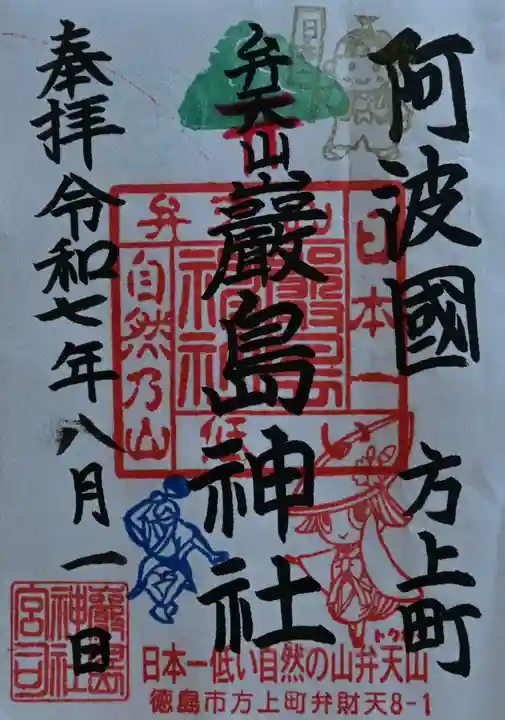 阿波國 方上町
弁天山
巖島神社
奉拝 令和七年八月一日
日本一
低い
自然乃山
弁
巖島
神社
巖島
神社
宮司
日本一低い自然の山弁天山
徳島市方上町弁財天8-1